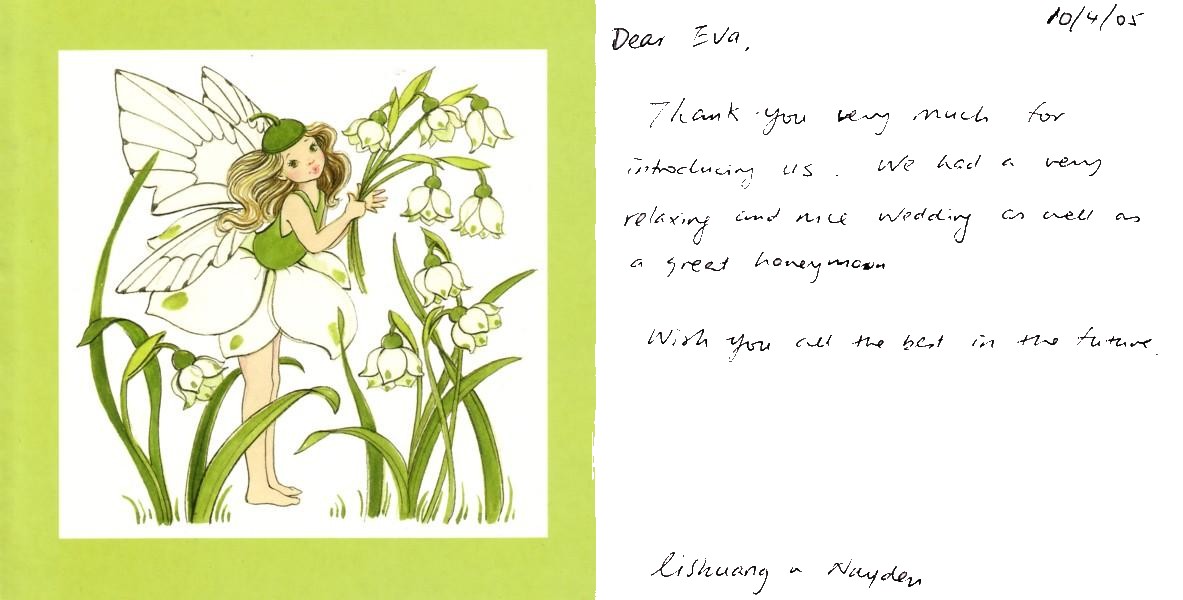 10/4/05
Dear Eva,
Thank you very much for
introducing us. We had a very
relaxing and nice wedding as well as
a great honeymoon
Wish you all the best in the future.
Lishuang & Nayden